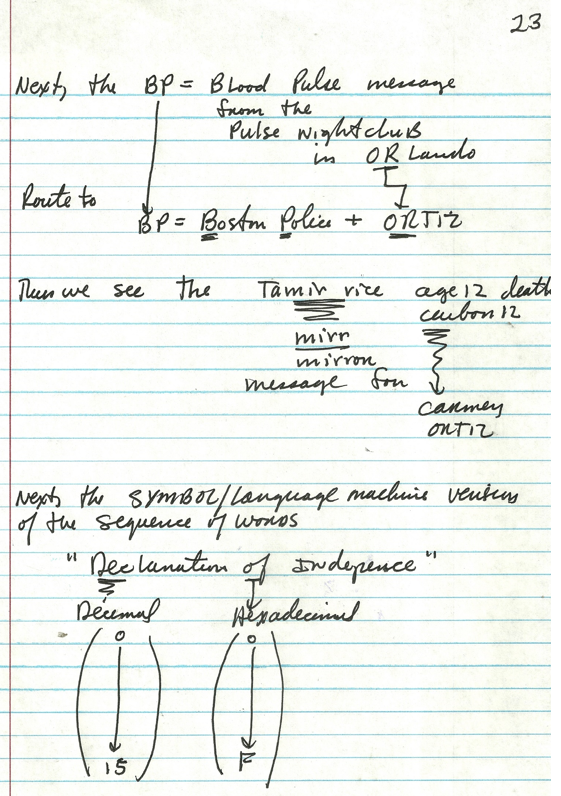 23
Next, the BP = Blood Pulse message
from the
Pulse NightcluB
in ORLando
Route to
BP = Boston Police + ORTIZ
Then we see the Tamir rice age 12 death
carbon 12
mirr
mirror
message for
carmen
ORTIZ
Next, the SYMBOL/Language machine version
of the sequence of words
"Declaration of Indepence"
Decimal Hexadecimal
0 0
15 F